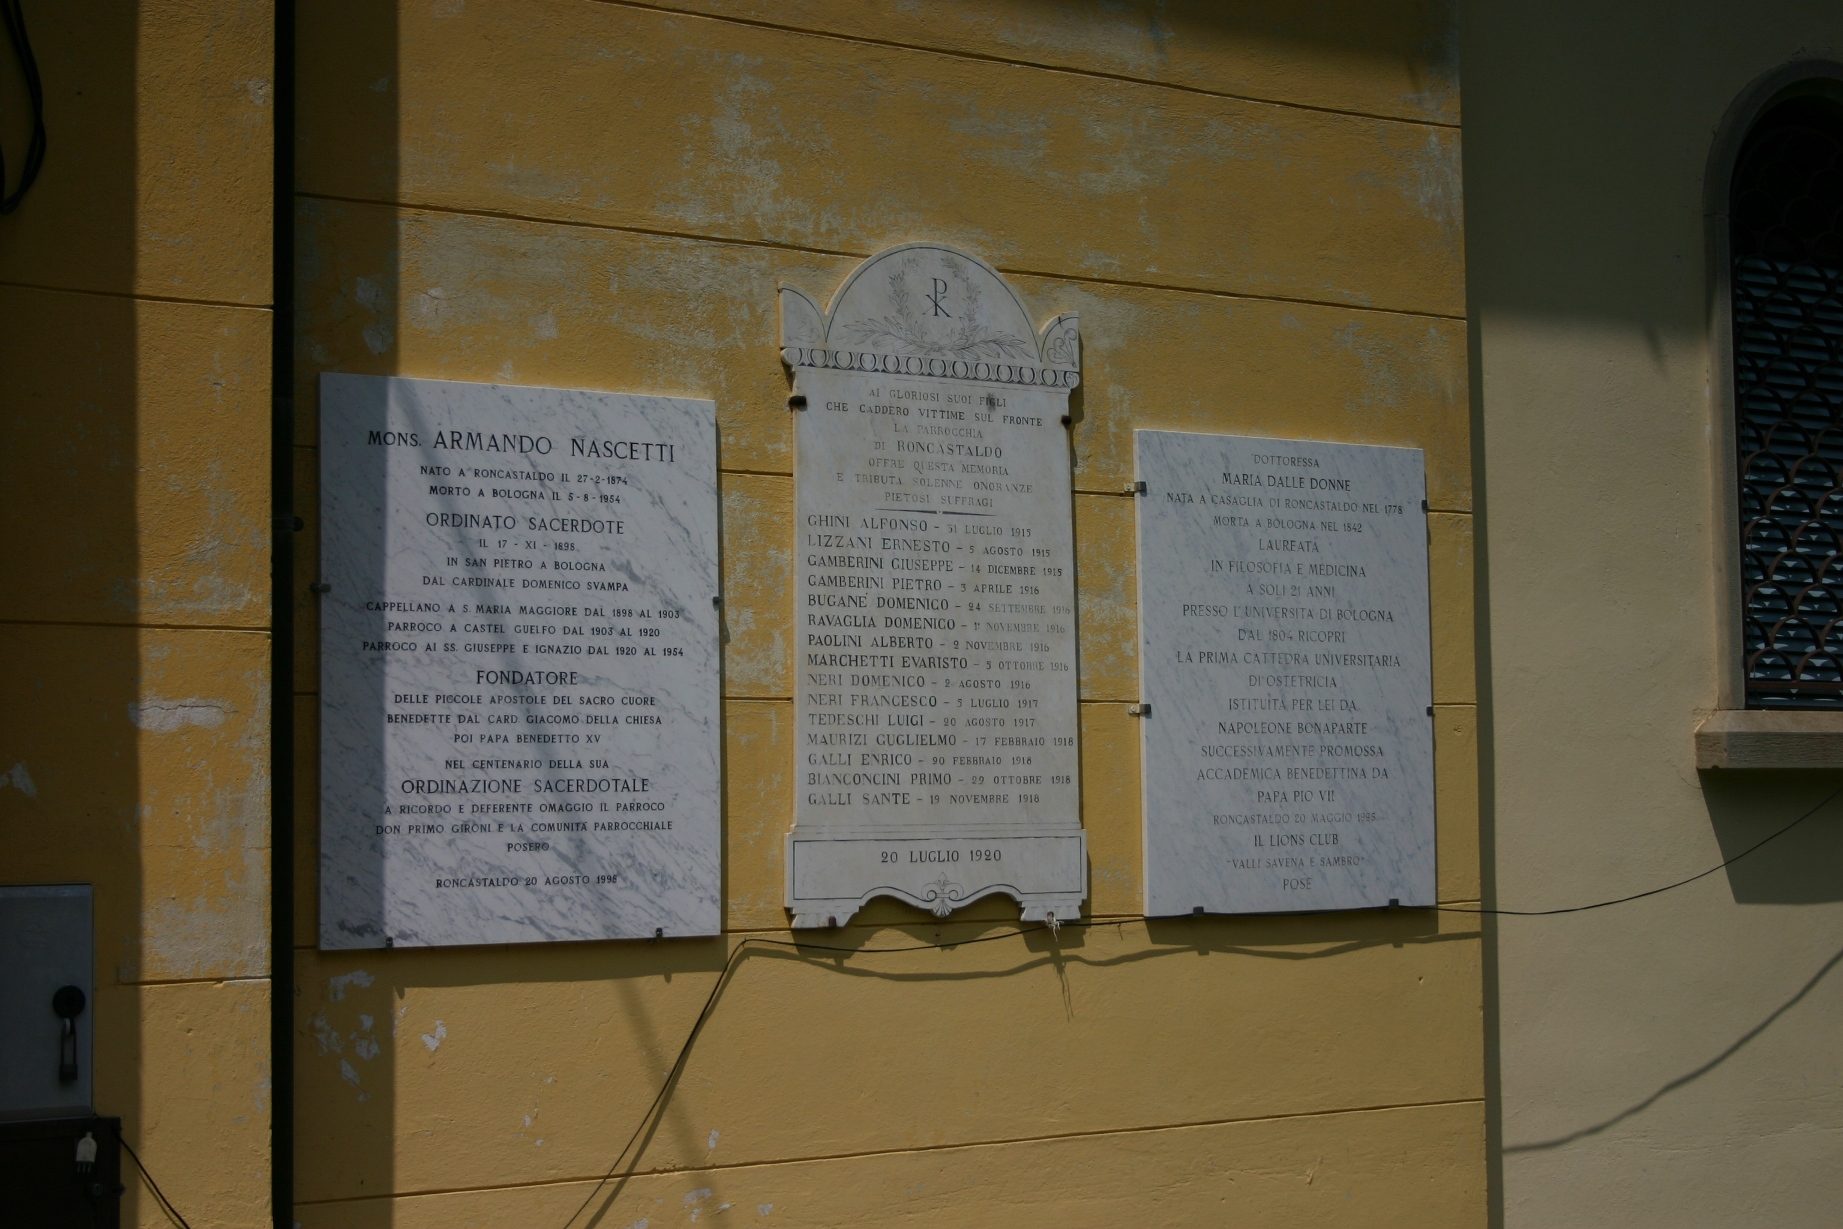 MONS. ARMANDO NASCETTI
NATO A RONCASTALDO IL 27-2-1874
MORTO A BOLOGNA IL 5-8-1954
ORDINATO SACERDOTE
IL 17 - XI - 1898
IN SAN PIETRO A BOLOGNA
DAL CARDINALE DOMENICO SVAMPA
CAPPELLANO A S. MARIA MAGGIORE DAL 1898 AL 1903
PARROCO A CASTEL GUELFO DAL 1903 AL 1920
PARROCO AI SS. GIUSEPPE E IGNAZIO DAL 1920 AL 1954
FONDATORE
DELLE PICCOLE APOSTOLE DEL SACRO CUORE
BENEDETTE DAL CARD. GIACOMO DELLA CHIESA
POI PAPA BENEDETTO XV
NEL CENTENARIO DELLA SUA
ORDINAZIONE SACERDOTALE
A RICORDO E DEFERENTE OMAGGIO IL PARROCO
DON PRIMO GIRONI E LA COMUNITÀ PARROCCHIALE
POSERO
RONCASTALDO 20 AGOSTO 1998
AI GLORIOSI SUOI FIGLI
CHE CADDERO VITTIME SUL FRONTE
LA PARROCCHIA
DI RONCASTALDO
OFFRE QUESTA MEMORIA
E TRIBUTA SOLENNE ONORANZE
PIETOSI SUFFRAGI
GHINI ALFONSO - 31 LUGLIO 1915
LIZZANI ERNESTO - 5 AGOSTO 1915
GAMBERINI GIUSEPPE - 14 DICEMBRE 1915
GAMBERINI PIETRO - 3 APRILE 1916
BUGANÈ DOMENICO - 24 SETTEMBRE 1916
RAVAGLIA DOMENICO - 1° NOVEMBRE 1916
PAOLINI ALBERTO - 2 NOVEMBRE 1916
MARCHETTI EVARISTO - 5 OTTOBRE 1916
NERI DOMENICO - 2 AGOSTO 1916
NERI FRANCESCO - 5 LUGLIO 1917
TEDESCHI LUIGI - 20 AGOSTO 1917
MAURIZI GUGLIELMO - 17 FEBBRAIO 1918
GALLI ENRICO - 20 FEBBRAIO 1918
BIANCONCINI PRIMO - 22 OTTOBRE 1918
GALLI SANTE - 19 NOVEMBRE 1918
20 LUGLIO 1920
DOTTORESSA
MARIA DALLE DONNE
NATA A CASAGLIA DI RONCASTALDO NEL 1778
MORTA A BOLOGNA NEL 1842
LAUREATA
IN FILOSOFIA E MEDICINA
A SOLI 21 ANNI
PRESSO L'UNIVERSITÀ DI BOLOGNA
DAL 1804 RICOPRÌ
LA PRIMA CATTEDRA UNIVERSITARIA
DI OSTETRICIA
ISTITUITA PER LEI DA
NAPOLEONE BONAPARTE
SUCCESSIVAMENTE PROMOSSA
ACCADEMICA BENEDETTINA DA
PAPA PIO VII
RONCASTALDO 20 MAGGIO
IL LIONS CLUB
"VALLI SAVENA E SAMBRO"
POSE